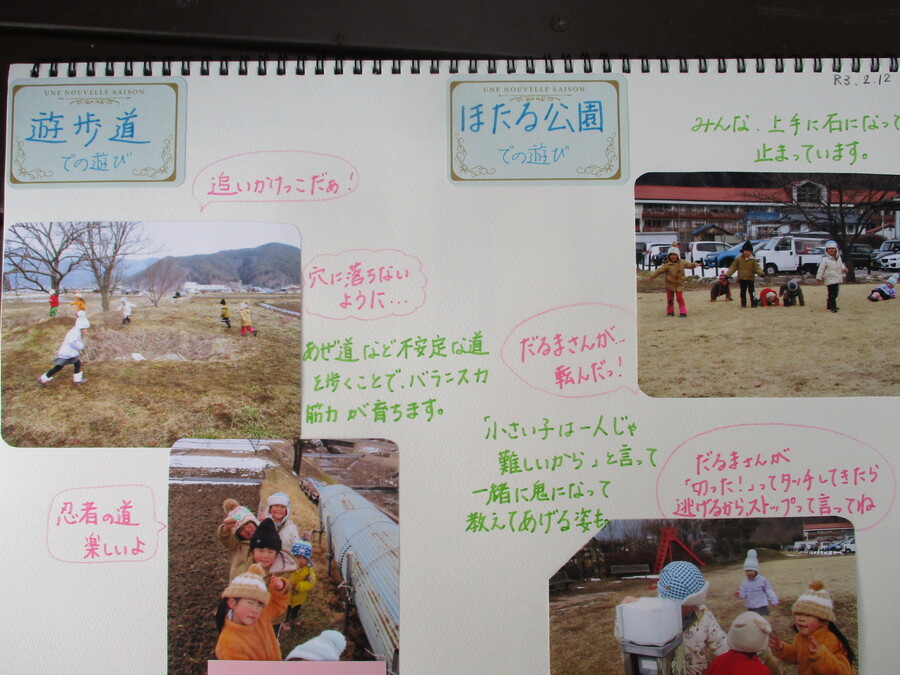 UNE NOUVELLE SAISON
遊歩道
での遊び
追いかけっこだぁ!
穴に落ちない
ように…
あぜ道など不安定な道
を歩くことで、バランス力
筋力が育ちます。
忍者の道
楽しいよ
UNE NOUVELLE SAISON
ほたる公園
での遊び
R3.2.12
みんな、上手に石になって
止まっています。
だるまさんが…
転んだっ!
「小さい子は一人じゃ
難しいから」と言って
一緒に鬼になって
教えてあげる姿も。
だるまさんが
「切った!」ってタッチしてきたら
逃げるから、ストップって言ってね